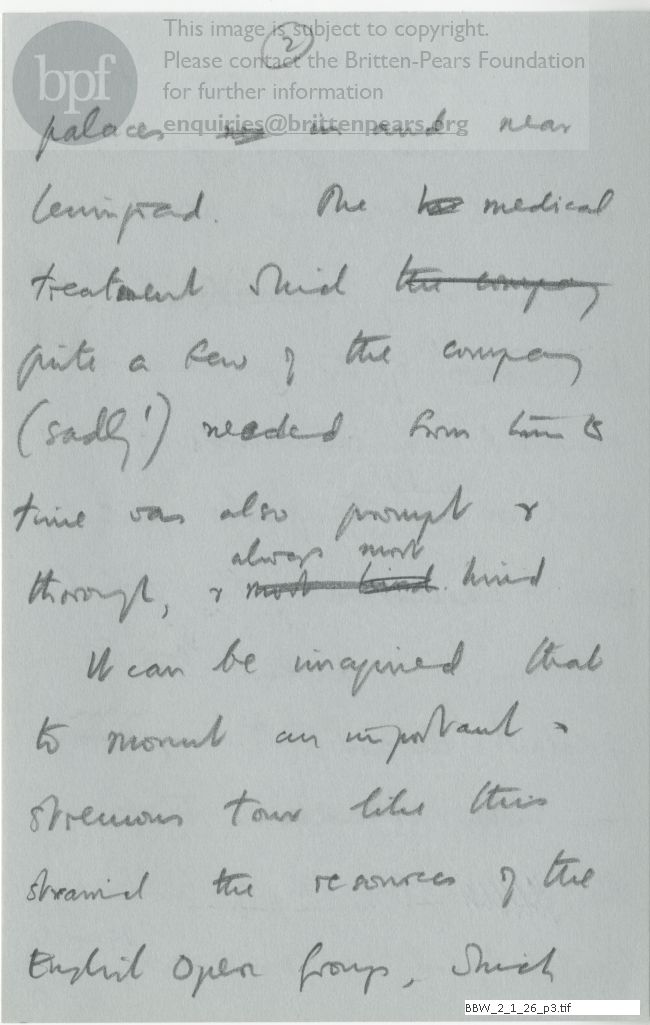 This image is subject to copyright.
2
Please contact the Britten-Pears Foundation
bpf
for further information
enquiries@brittenpears.org
palaces in and near
Leningrad. The medical
treatment which the company
quite a few of the company
(sadly!) needed from time to
time was also prompt &
always most
thorough, & most kind. kind
It can be imagined that
to mount an important &
strenuous tour like this
strained the resources of the
English Opera Group, which
BBW_2_1_26_p3.tif